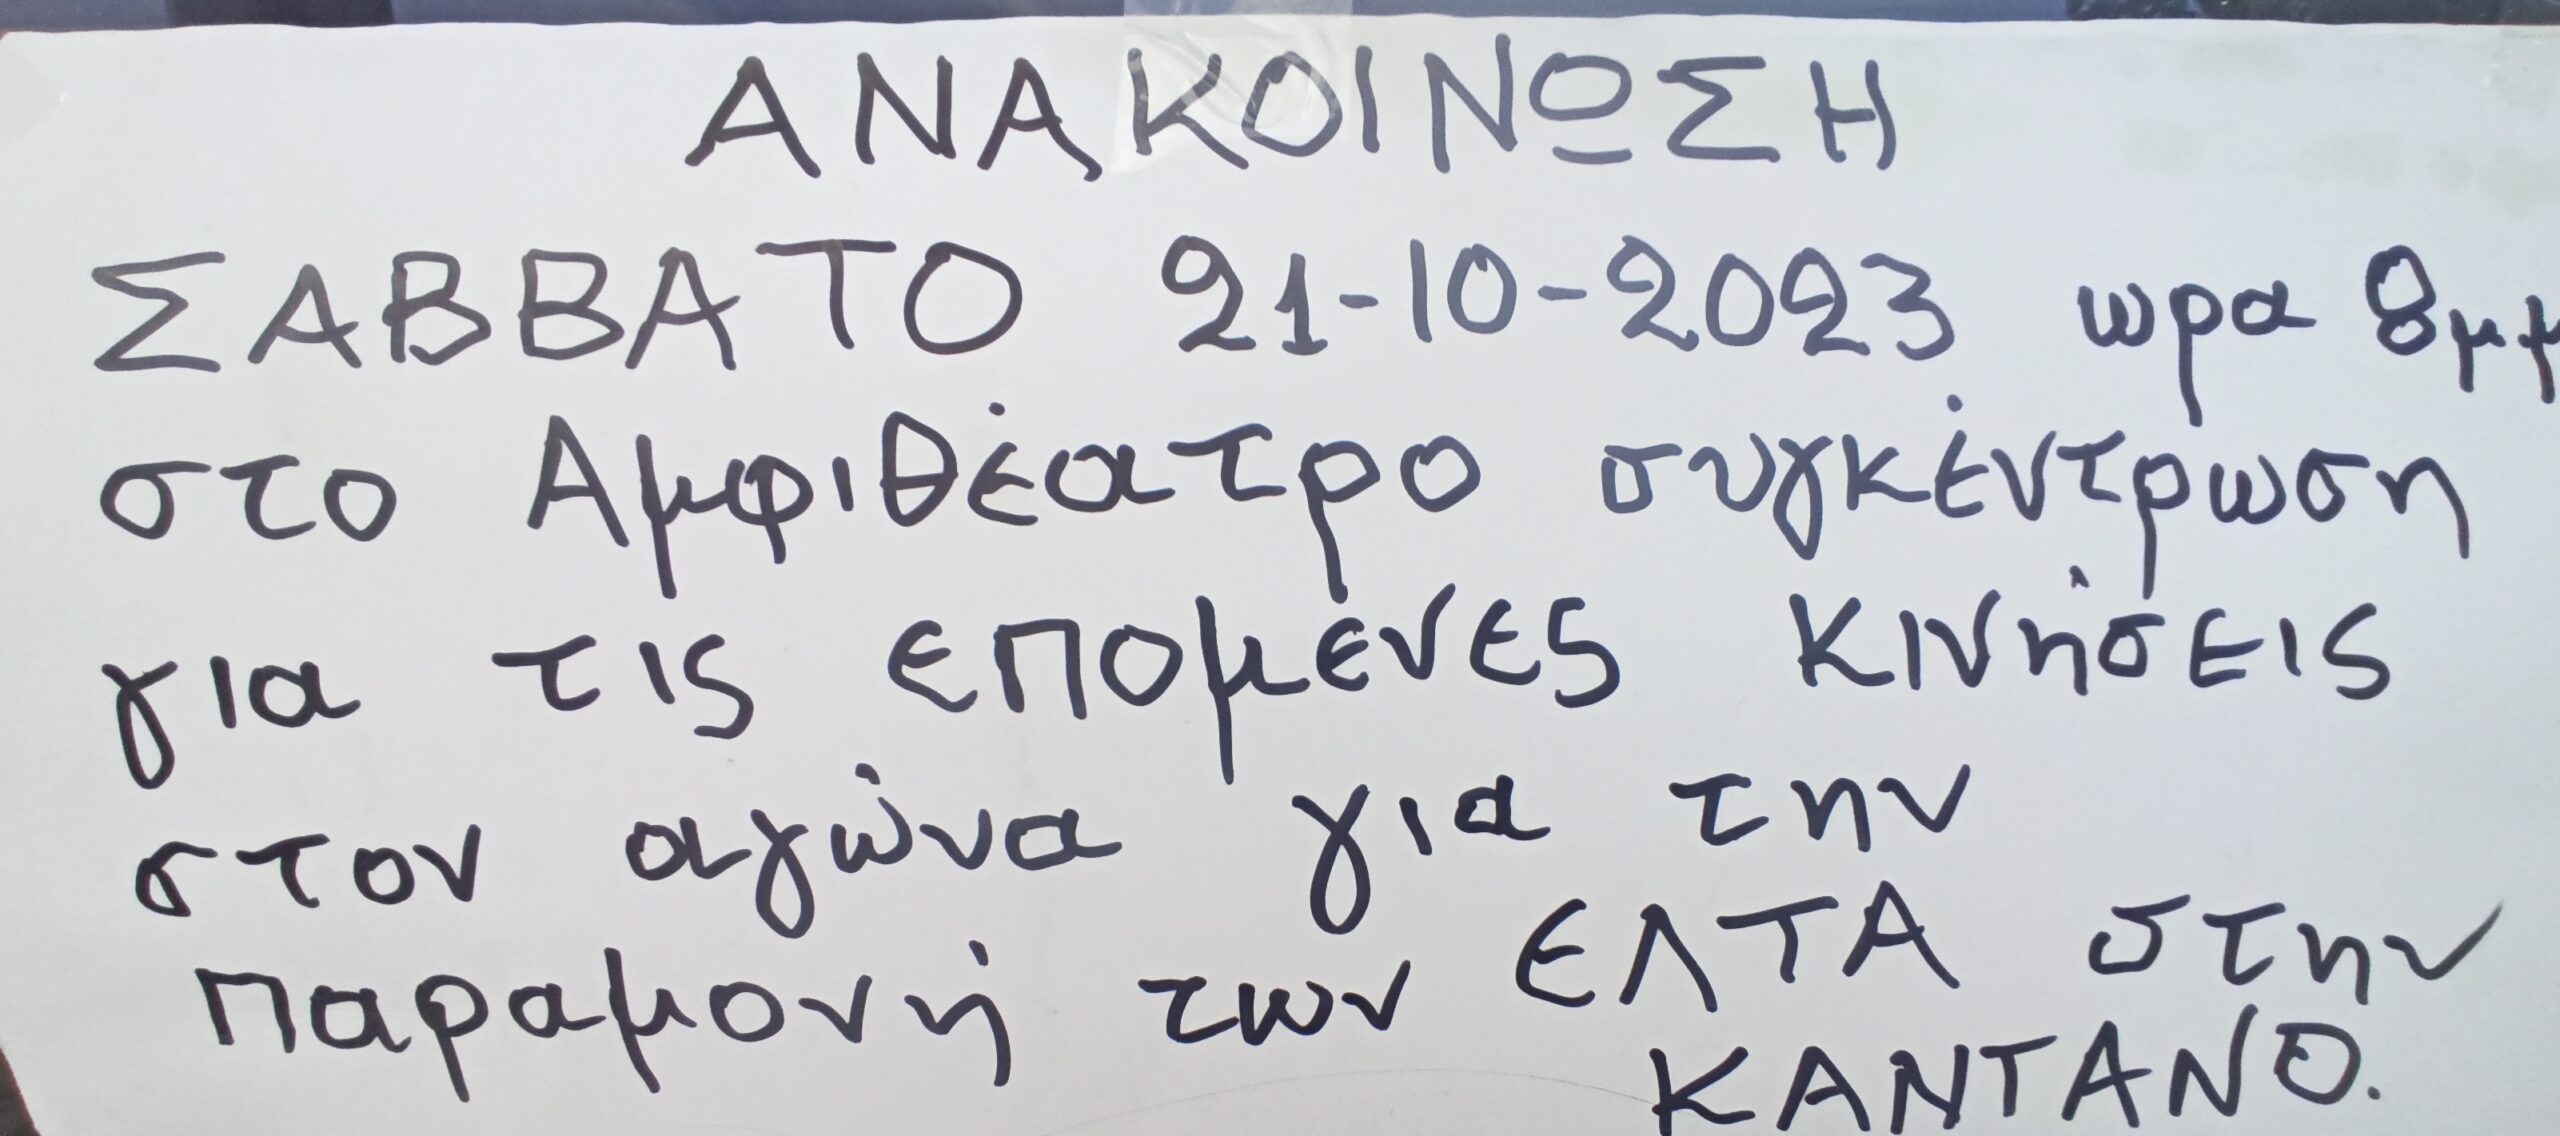 ΑΝΑΚΟΙΝΩΣΗ
ΣΑΒΒΑΤΟ 21-10-2023 ωρα 8μμ
στο Αμφιθέατρο συγκέντρωση
για τις επομένες κινήσεις
στον αγώνα για την
παραμονή των ΕΛΤΑ στην
ΚΑΝΤΑΝΟ.